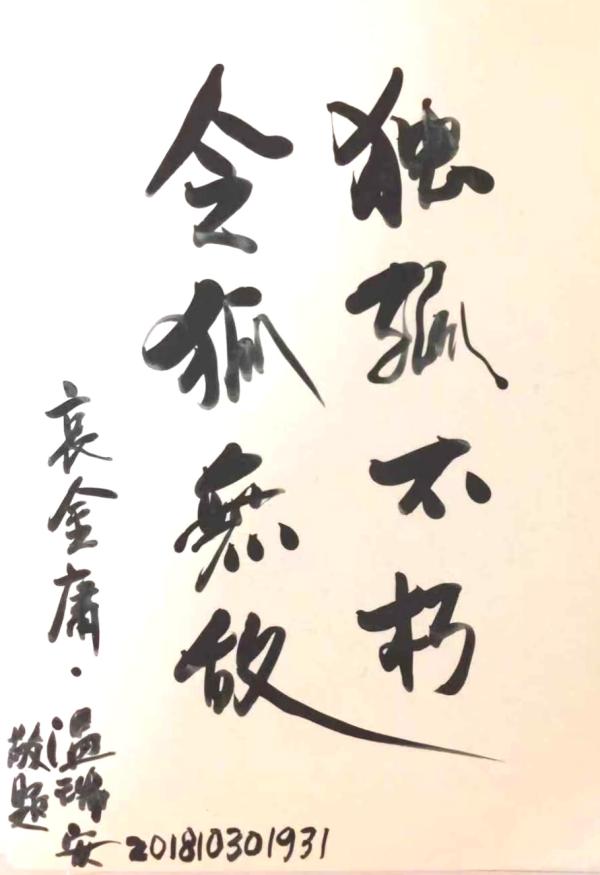 独孤不朽
令狐無敌
哀金庸·
温瑞安
敬题
201810301931